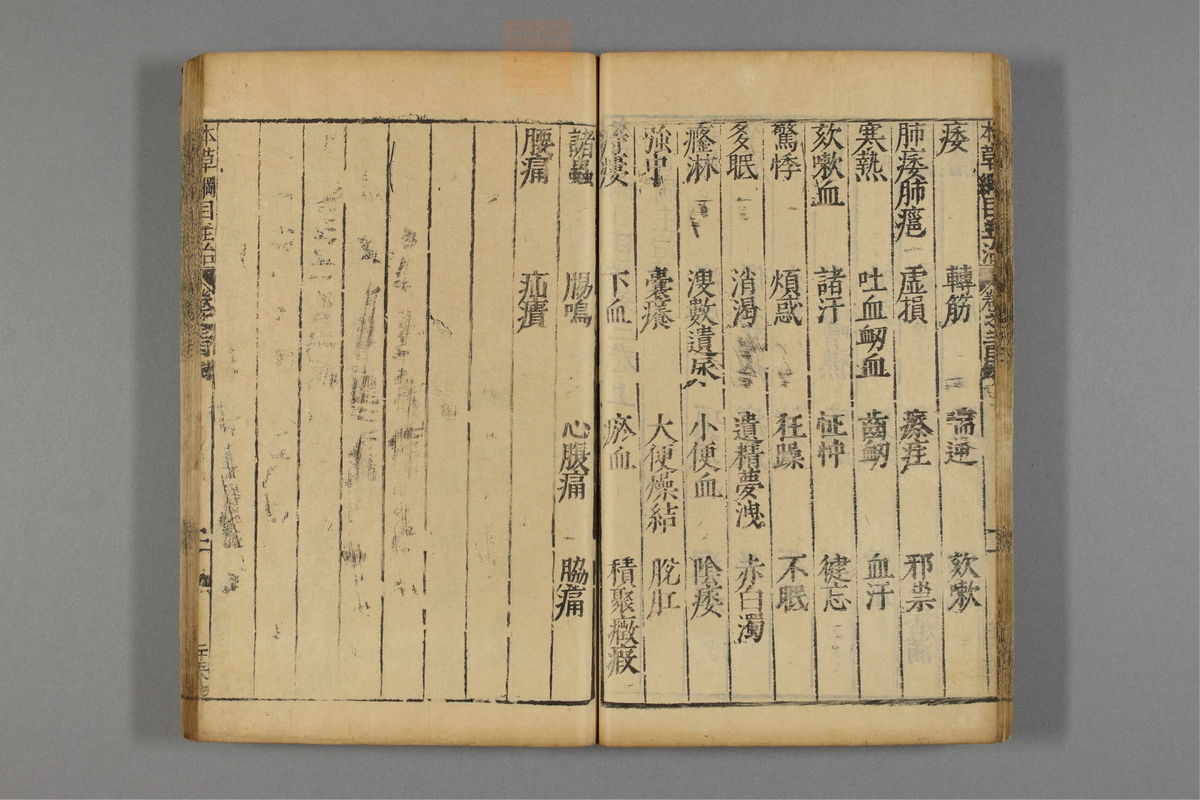 痿 轉筋 喘逆 欬嗽
肺痿肺癰 虛損 瘵疰 邪祟
寒熱 吐血衂血 齒衂 血汗
欬嗽血 諸汗 怔忡 健忘
驚悸 煩惑 狂躁 不眠
多眠 消渴 遺精夢洩 赤白濁
癃淋 溲數遺尿 小便血 陰痿
強中 囊癢 大便燥結 脫肛
痔瘻 下血 瘀血 積聚癥瘕
諸蟲 腸鳴 心腹痛 脇痛
腰痛 疝㿉
本草綱目主治